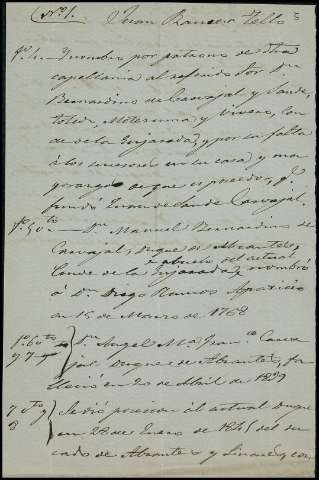 (Nº 1. Juan Ramero Tello
fº 4.- Nombro por patrono de dha
capellania al referido Sor Dn
Bernardino de Carvajal y Sande,
Toledo, Motezuma y Vivero, Con-
de de la Enjarada, y por su falta
á los sucesores en su casa y ma-
yorazgo de que es poseedor, qe
fundó Juan de Sande Carvajal.
fº 50 to — Dn Manuel Bernardino de
Carvajal, Duque de Abrantes,
y abuelo del actual
Conde de la Enjarada, nombró
á Dn Diego Ramos Aparicio
en 15 de Marzo de 1768
fº 60 to Dn Angel Mª Franco Carva
y 77 jal Duque de Abrantes, fa
lleció en 20 de Abril de 1839
70 to Se dió posesion al actual Duque
8 en 28 de Enero de 1841 del du
cado de Abrantes y Linares, y con